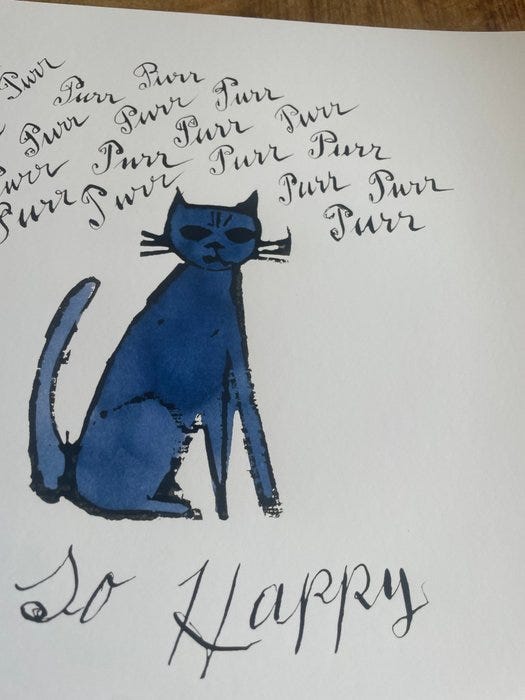 Purr
Purr Purr
Purr Purr Purr
urr Purr Purr Purr
Purr Purr Purr Purr
Purr Purr
Purr
So Happy